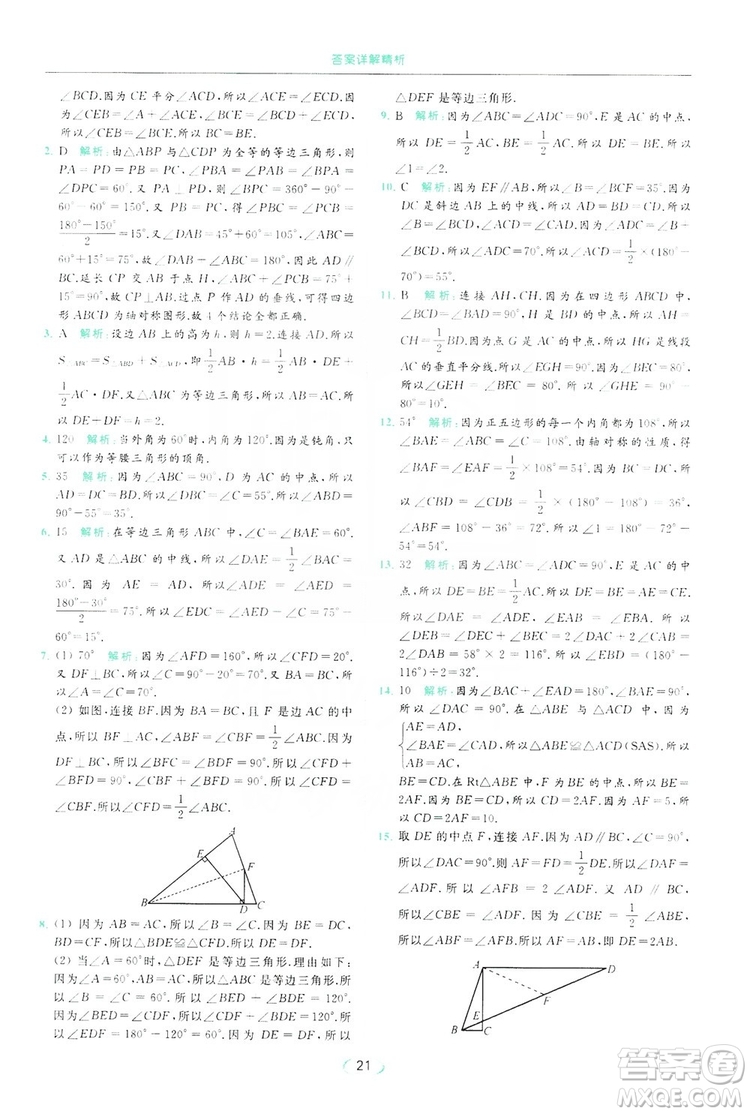 答案详解精析
∠BCD.因为 CE 平分∠BCD,所以∠ACE=∠ECD.因
为∠CEB=∠A+∠ACE,∠BCE=∠BCD+∠ECD,所
以∠CEB=∠BCE.所以 BC=BE.
2. D 解析:由△ABP 与△CDP 为全等的等边三角形,则
PA=PD=PB=PC,∠PAB=∠BPA=∠PBA=
∠DPC=60°.所以∠BPC=360°-90°-60°×2=
150°.又 PB=PC,得∠PBC=∠PCB=
(180°-150°)/2=15°.又∠DAB=45°+60°=105°,
所以∠DAB+∠ABC=105°+60°+15°=180°.所以 AD∥
BC.延长 CP 交 AB 于点 G,则∠BGC=180°-75°-
15°=90°,故 CP⊥AB.过点 P 作 AD 的垂线,可得四边
形 ABCD 为轴对称图形.故 4 个结论全部正确.
3. A 解析:设边 AB 上的高为 h,则 h=2.连接 AD,则
S△ABD+S△ACD=S△ABC,即 1/2 AB·h=1/2 AB·DE+
1/2 AC·DF.又△ABC 为等边三角形,所以 AB=AC.所
以 DE+DF=h=2.
4. 120 解析:当外角为 60°时,内角为 120°,为钝角,只
可以作为等腰三角形的顶角.
5. 35 解析:因为∠ABC=90°,D 为 AC 的中点,所以
AD=BD=DC.因为∠C=55°,所以∠DBC=55°.所以
∠ABD=90°-55°=35°.
6. 15 解析:在等边三角形 ABC 中,∠C=∠BAE=60°.
又 AD 是△ABC 的中线,所以∠DAE=1/2∠BAE=
30°.因为 AD=AE,所以∠AED=∠ADE=
(180°-30°)/2=75°.所以∠EDC=∠AED-∠C=75°-
60°=15°.
7. (1) 70° 解析:因为∠AFD=160°,所以∠DFC=20°.
又 DF⊥BC,所以∠C=90°-20°=70°.又 BA=BC,所
以∠A=∠C=70°.
(2) 如图,连接 BF.因为 BA=BC,且 F 是边 AC 的中
点,所以 BF⊥AC,∠ABF=∠CBF=1/2∠ABC.所以
∠CFD+∠BFD=90°,∠CBF+∠BFD=90°.所以
∠CFD=∠CBF.所以∠CFD=1/2∠ABC.
A
E
F
B
D
C
8. (1) 因为 AB=AC,所以∠ABC=∠ACB.因为 BD=
CF,BE=CD,所以△BDE≌△CFD.所以 DE=DF.
(2) 当∠A=60°时,△DEF 是等边三角形.理由如下:
因为∠A=60°,AB=AC,所以△ABC 是等边三角形.所
以∠B=60°,∠BED+∠BDE=180°-∠B=120°.因
为△BDE≌△CFD,所以∠BED=∠CDF.所以
∠EDF=180°-120°=60°.因为 DE=DF,所以
△DEF 是等边三角形.
9. B 解析:因为∠ABC=∠ADC=90°,E 是 AC 的中点,
所以 DE=1/2 AC,BE=1/2 AC.所以 DE=BE.所以∠1=
∠2.
10. C 解析:因为 EF∥AB,所以∠B=∠BCF=35°.因为
DC 是斜边 AB 上的中线,所以 AD=BD=CD.所以
∠DCB=∠B=35°,∠DCA=∠A.所以∠A=1/2×
(180°-70°)=55°.
11. B 解析:连接 AH,CH.因为在四边形 ABCD 中,
∠BCD=∠BAD=90°,H 是 BD 的中点,所以 AH=
CH=1/2 BD.因为 G 是 AC 的中点,所以 HG 是线段
AC 的垂直平分线.所以∠EGH=90°.因为∠BEC=80°,所
以∠GEH=∠BEC=80°.所以∠GHE=90°-
80°=10°.
12. 54° 解析:因为正五边形的每一个内角都为 108°,所以
∠BAE=∠ABC=∠C=108°.由轴对称的性质,得
∠BAF=1/2∠BAE=1/2×108°=54°.因为 BC=CD,所
以∠CBD=∠CDB=1/2×(180°-108°)=36°.所以
∠ABF=108°-36°=72°.所以∠AFB=180°-72°-
54°=54°.
13. 32 解析:因为∠ABC=∠ADC=90°,E 是 AC 的中
点,所以 DE=1/2 AC,AE=1/2 AC,BE=1/2 AC.
所以∠DAE=∠ADE,∠BAE=∠EBA.所以
∠DEB=∠DEC+∠BEC=2∠DAE+2∠BAE=
2∠DAB=58°×2=116°.所以∠EBD=(180°-
116°)÷2=32°.
14. 10 解析:因为 AF⊥AB,所以∠BAE=90°.又
∠CAD=90°,所以∠BAE=∠CAD.在△ABE 与△ACD 中,
AE=AD,
∠BAE=∠CAD,所以△ABE≌△ACD(SAS).所以
AB=AC,
BE=CD.又在 Rt△ABE 中,F 为 BE 的中点,所以 BE=
2AF.所以 CD=2AF=10.
15. 取 DE 的中点 F,连接 AF.因为 AD∥BC,∠ACB=90°,
所以∠DAC=90°.所以 AF=DF=EF=1/2 DE.所以
∠DAF=∠D.所以∠AFB=2∠D.又 AD∥BC,所以
∠CBE=∠D.因为∠CBE=1/2∠ABE,所以∠ABE=
2∠D.所以∠AFB=∠ABE.所以 AB=AF=1/2 DE.
A
D
E
F
B
C
21
答案圈
MXQE.COM